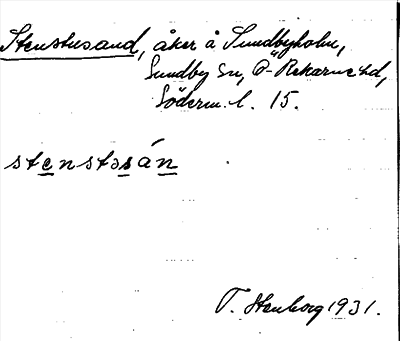 Stenstusand, åker å Sundbyholm,
Sundby sn, Ö-Rekarne hd,
Söderm. l. 15.
stenstəsán
T. Stenborg 1931.